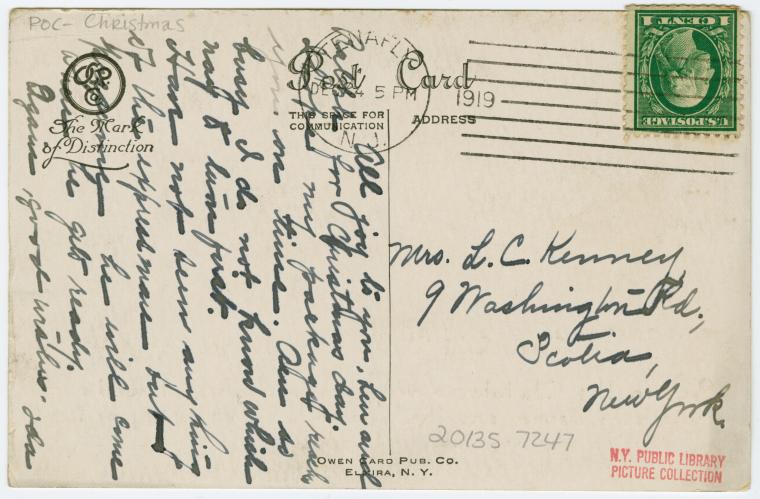 POC- Christmas
The Mark
of Distinction
Post Card
THIS SPACE FOR
COMMUNICATION
ADDRESS
TENAFLY
DEC 24 5 PM
1919
N.J.
1 CENT 1
U.S. POSTAGE
All joy to you, dear
for Christmas day.
hope my package reach
you on time. Am so
busy I do not know which
way to turn first.
Have not seen anything
of the expressman but
he will come
when he gets ready.
Again good wishes. Ida
Mrs. L. C. Kenney,
9 Washington Rd.,
Scotia,
New York.
20135 7247
OWEN CARD PUB. CO.
ELMIRA, N. Y.
N.Y. PUBLIC LIBRARY
PICTURE COLLECTION